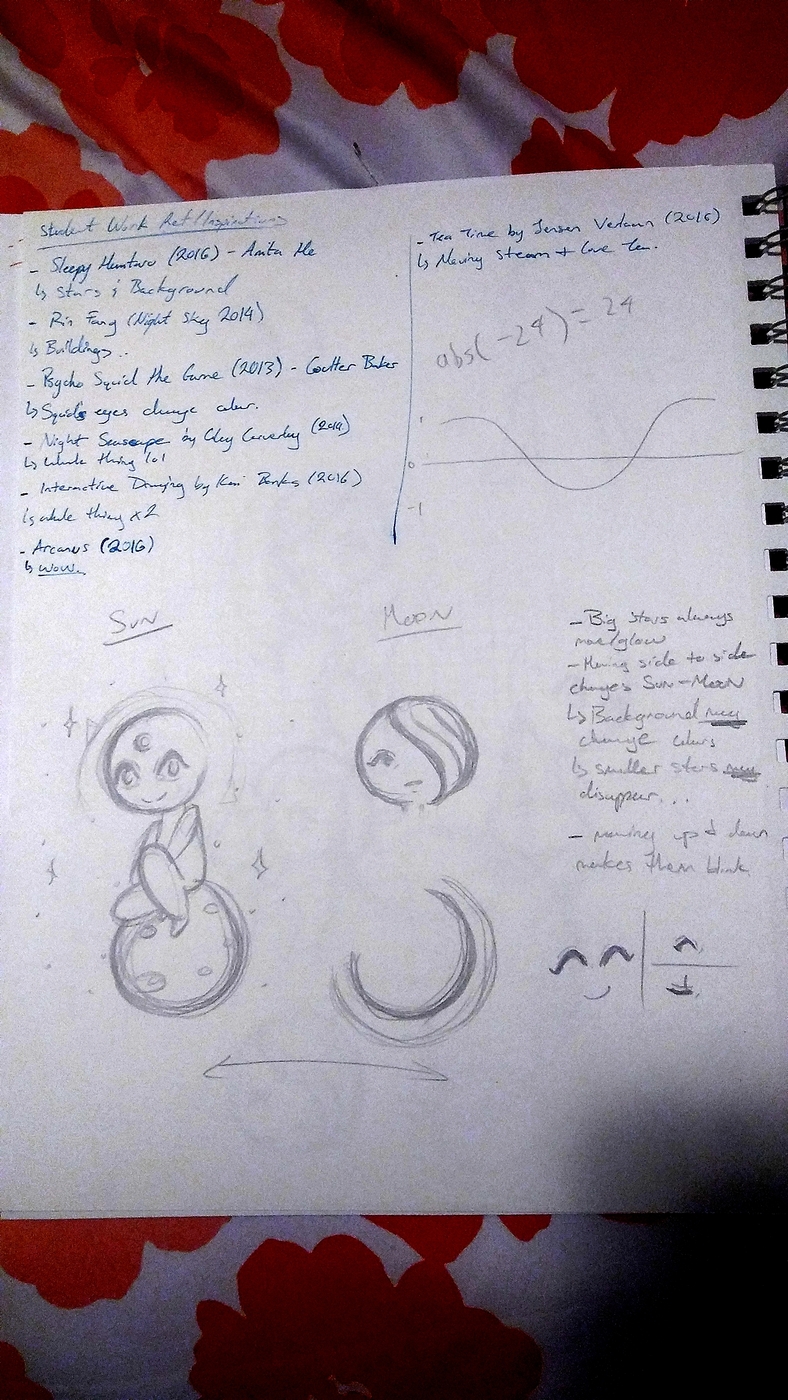 Student Work Ref/Inspirations
- Sleepy (2016) - Anita He
↳ Stars & Background
- Rin Fang (Night Sky 2014)
↳ Buildings..
- Psycho Squid the Game (2013) -
↳ Squid's eyes change colour.
- Night Seascape by Clay (2014)
↳ Whole thing lol
- Interactive Drawing by Banks (2016)
↳ whole thing x2
- Arcanus (2016)
↳ wow.
- Tea Time by Jensen (2016)
↳ Moving steam + love tea.
abs(-24) = 24
1
0
-1
Sun
Moon
- Big stars always
move/glow
- Moving side to side
changes Sun - Moon
↳ Background may
change colours
↳ smaller stars may
disappear...
- moving up & down
makes them blink